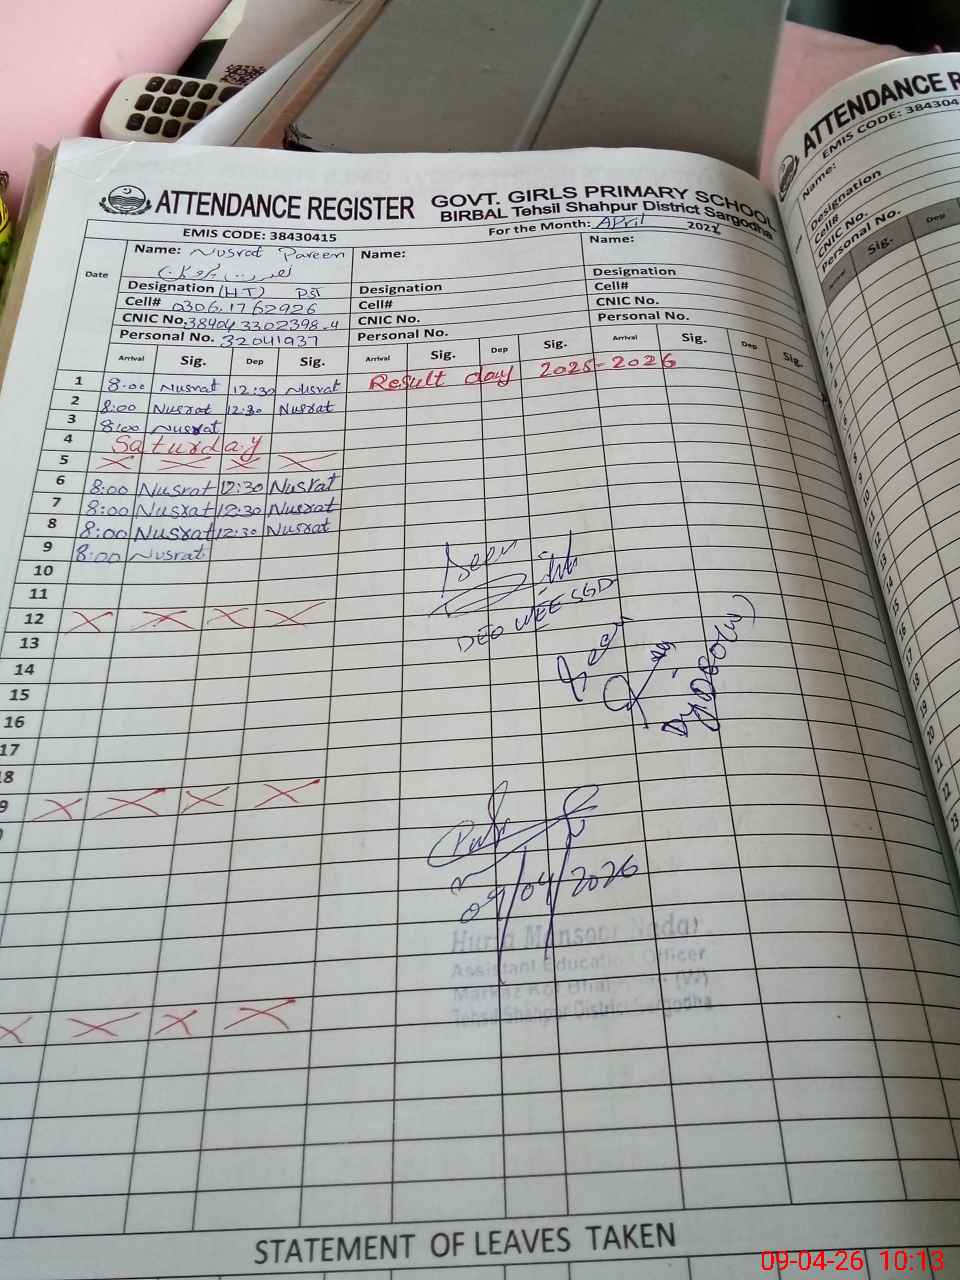 ATTENDANCE REGISTER GOVT. GIRLS PRIMARY SCHOOL
BIRBAL Tehsil Shahpur District Sargodha
EMIS CODE: 38430415 For the Month: April 202
Date Name: Nusrat Parveen Name: Name:
نصرت پروین
Designation (HT) PST Designation Designation
Cell# 0306.1762926 Cell# Cell#
CNIC No. 38404 3302398-4 CNIC No. CNIC No.
Personal No. 32041937 Personal No. Personal No.
Arrival Sig. Dep Sig. Arrival Sig. Dep Sig. Arrival Sig. Dep Sig.
1 8:00 Nusrat 12:30 Nusrat Result day 2025-2026
2 8:00 Nusrat 12:30 Nusrat
3 8:00 Nusrat
4 Saturday
5
6 8:00 Nusrat 12:30 Nusrat
7 8:00 Nusrat 12:30 Nusrat
8 8:00 Nusrat 12:30 Nusrat
9 8:00 Nusrat
10
11
12
13
14
15
16
17
18
9
DEO WEE SGD
09/04/2026
Assistant Education Officer
Tehsil Shahpur District Sargodha
STATEMENT OF LEAVES TAKEN
ATTENDANCE R
EMIS CODE: 384304
Name:
Designation
Cell#
CNIC No.
Personal No.
Arrival Sig. Dep
09-04-26 10:13